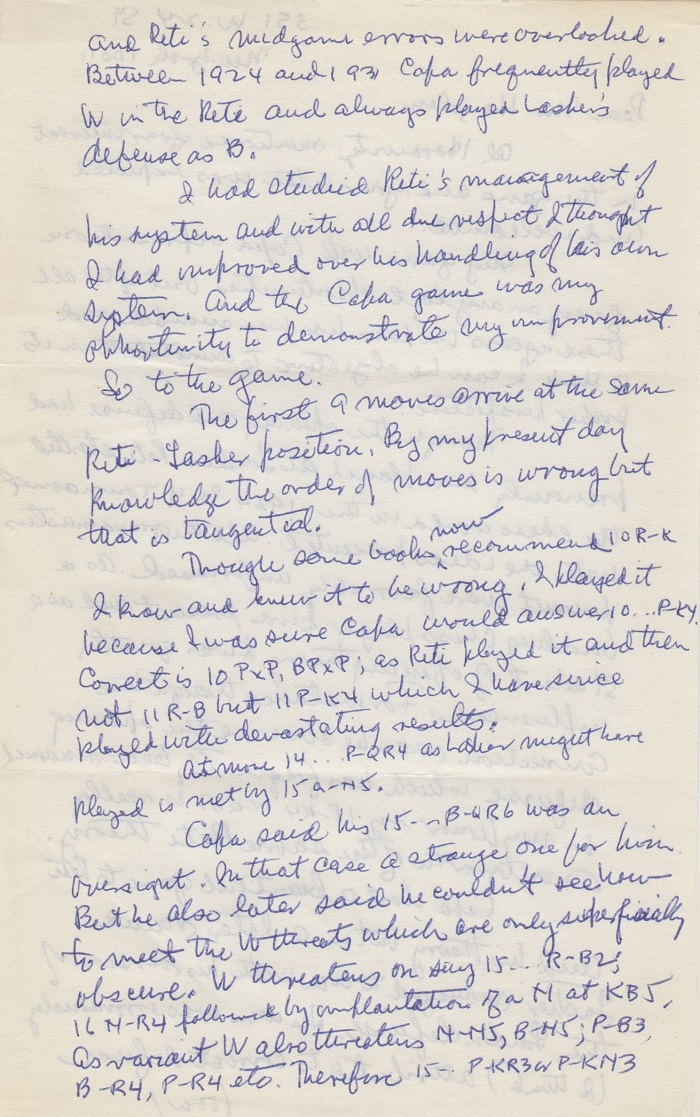 and Reti's midgame errors were overlooked.
Between 1924 and 1931 Capa frequently played
W in the Reti and always played Lasker's
defense as B.
I had studied Reti's management of
his system and with all due respect I thought
I had improved over his handling of his own
system. And the Capa game was my
opportunity to demonstrate my improvement.
So to the game.
The first 9 moves arrive at the same
Reti-Lasker position. By my present day
knowledge the order of moves is wrong but
that is tangential.
Though some books now recommend 10 R-K
I know and knew it to be wrong, I played it
because I was sure Capa would answer 10...P-K4.
Correct is 10 PxP, BPxP; as Reti played it and then
not 11 R-B but 11 P-K4 which I have since
played with devastating results.
At move 14... P-QR4 as Lasker might have
played is met by 15 Q-N5.
Capa said his 15-- B-QR6 was an
oversight. In that case a strange one for him.
But he also later said he couldn't see how
to meet the W threats which are only superficially
obscure. W threatens on say 15... R-B2;
16 N-R4 followed by implantation of a N at KB5,
As variant W also threatens N-N5, B-N5; P-B3,
B-R4, P-R4 etc. Therefore 15-- P-KR3 or P-KN3